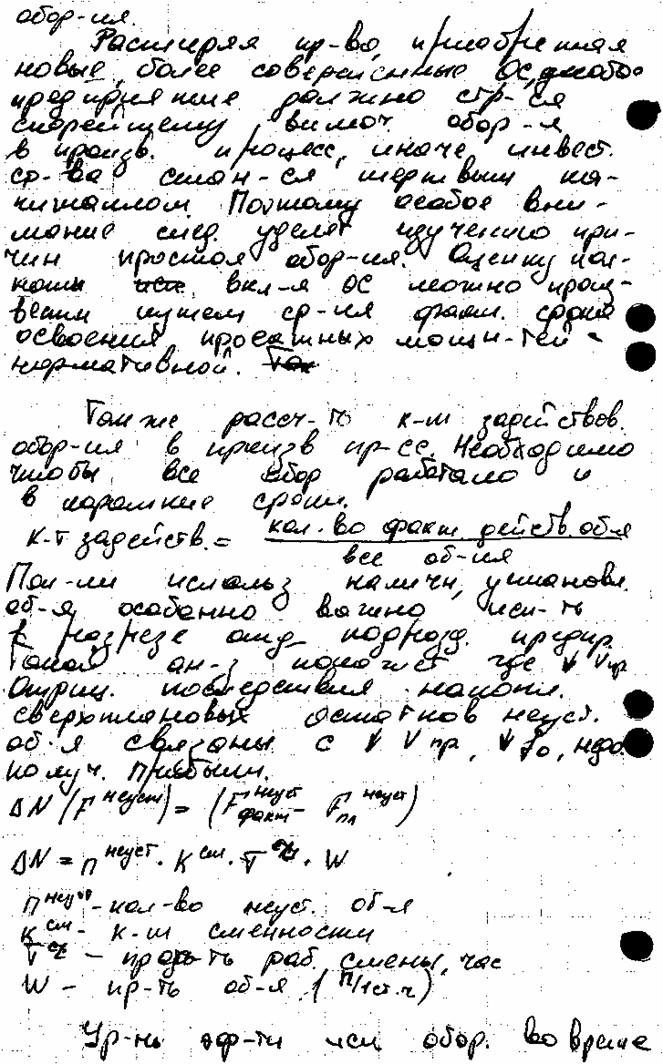 обор-ия.
Расширяя пр-во, приобретая
новые, более совершенные ОС, любое
предприятие должно стр-ся
скорейшему включ. обор-я
в произв. процесс, иначе инвест.
ср-ва стан-ся мертвым ка-
питалом. Поэтому особое вни-
мание след. уделят изучению при-
чин простоя обор-ия. Оценку пол-
ноты вкл-я ОС можно произ-
вести путем ср-ия факт. срока
освоения проектных мощн-тей с
нормативной. Так
Также рассч-ть к-т задействов.
обор-ия в произв пр-се. Необходимо
чтобы все обор работало и
в короткие сроки.
К-т задейств. = кол-во факт действ. об-я
все об-ия
Пок-ли использ наличн, установл.
об-я особенно важно исп-ть
в разрезе отд. подразд. предпр.
Такой ан-з покажет где ↓ Vпр
Отриц. последствия накопл.
сверхплановых остатков неуст.
об-я связаны с ↓ Vпр, ↓ fо, недо
получ. прибыли.
ΔN(F неуст) = (F неуст факт - F неуст пл)
ΔN = n неуст · K см · T см · W
n неуст - кол-во неуст. об-я
K см - к-т сменности
T см – прод-ть раб. смены, час
W – пр-ть об-я (П/1ст.ч)
Ур-нь эф-ти исп обор. во време